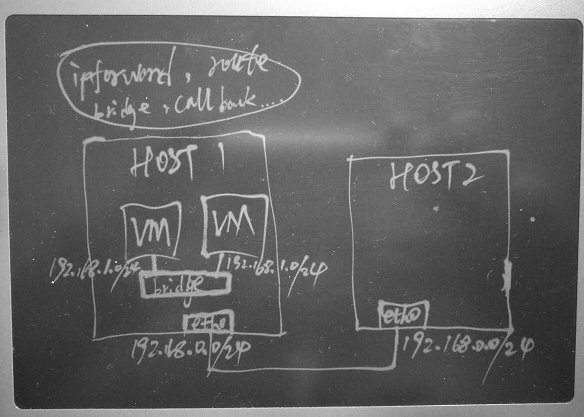 ipforword, route
bridge, call back....
HOST 1
HOST 2
VM
VM
192.168.1.0/24
192.168.1.0/24
bridge
eth0
eth0
192.168.0.0/24
192.168.0.0/24